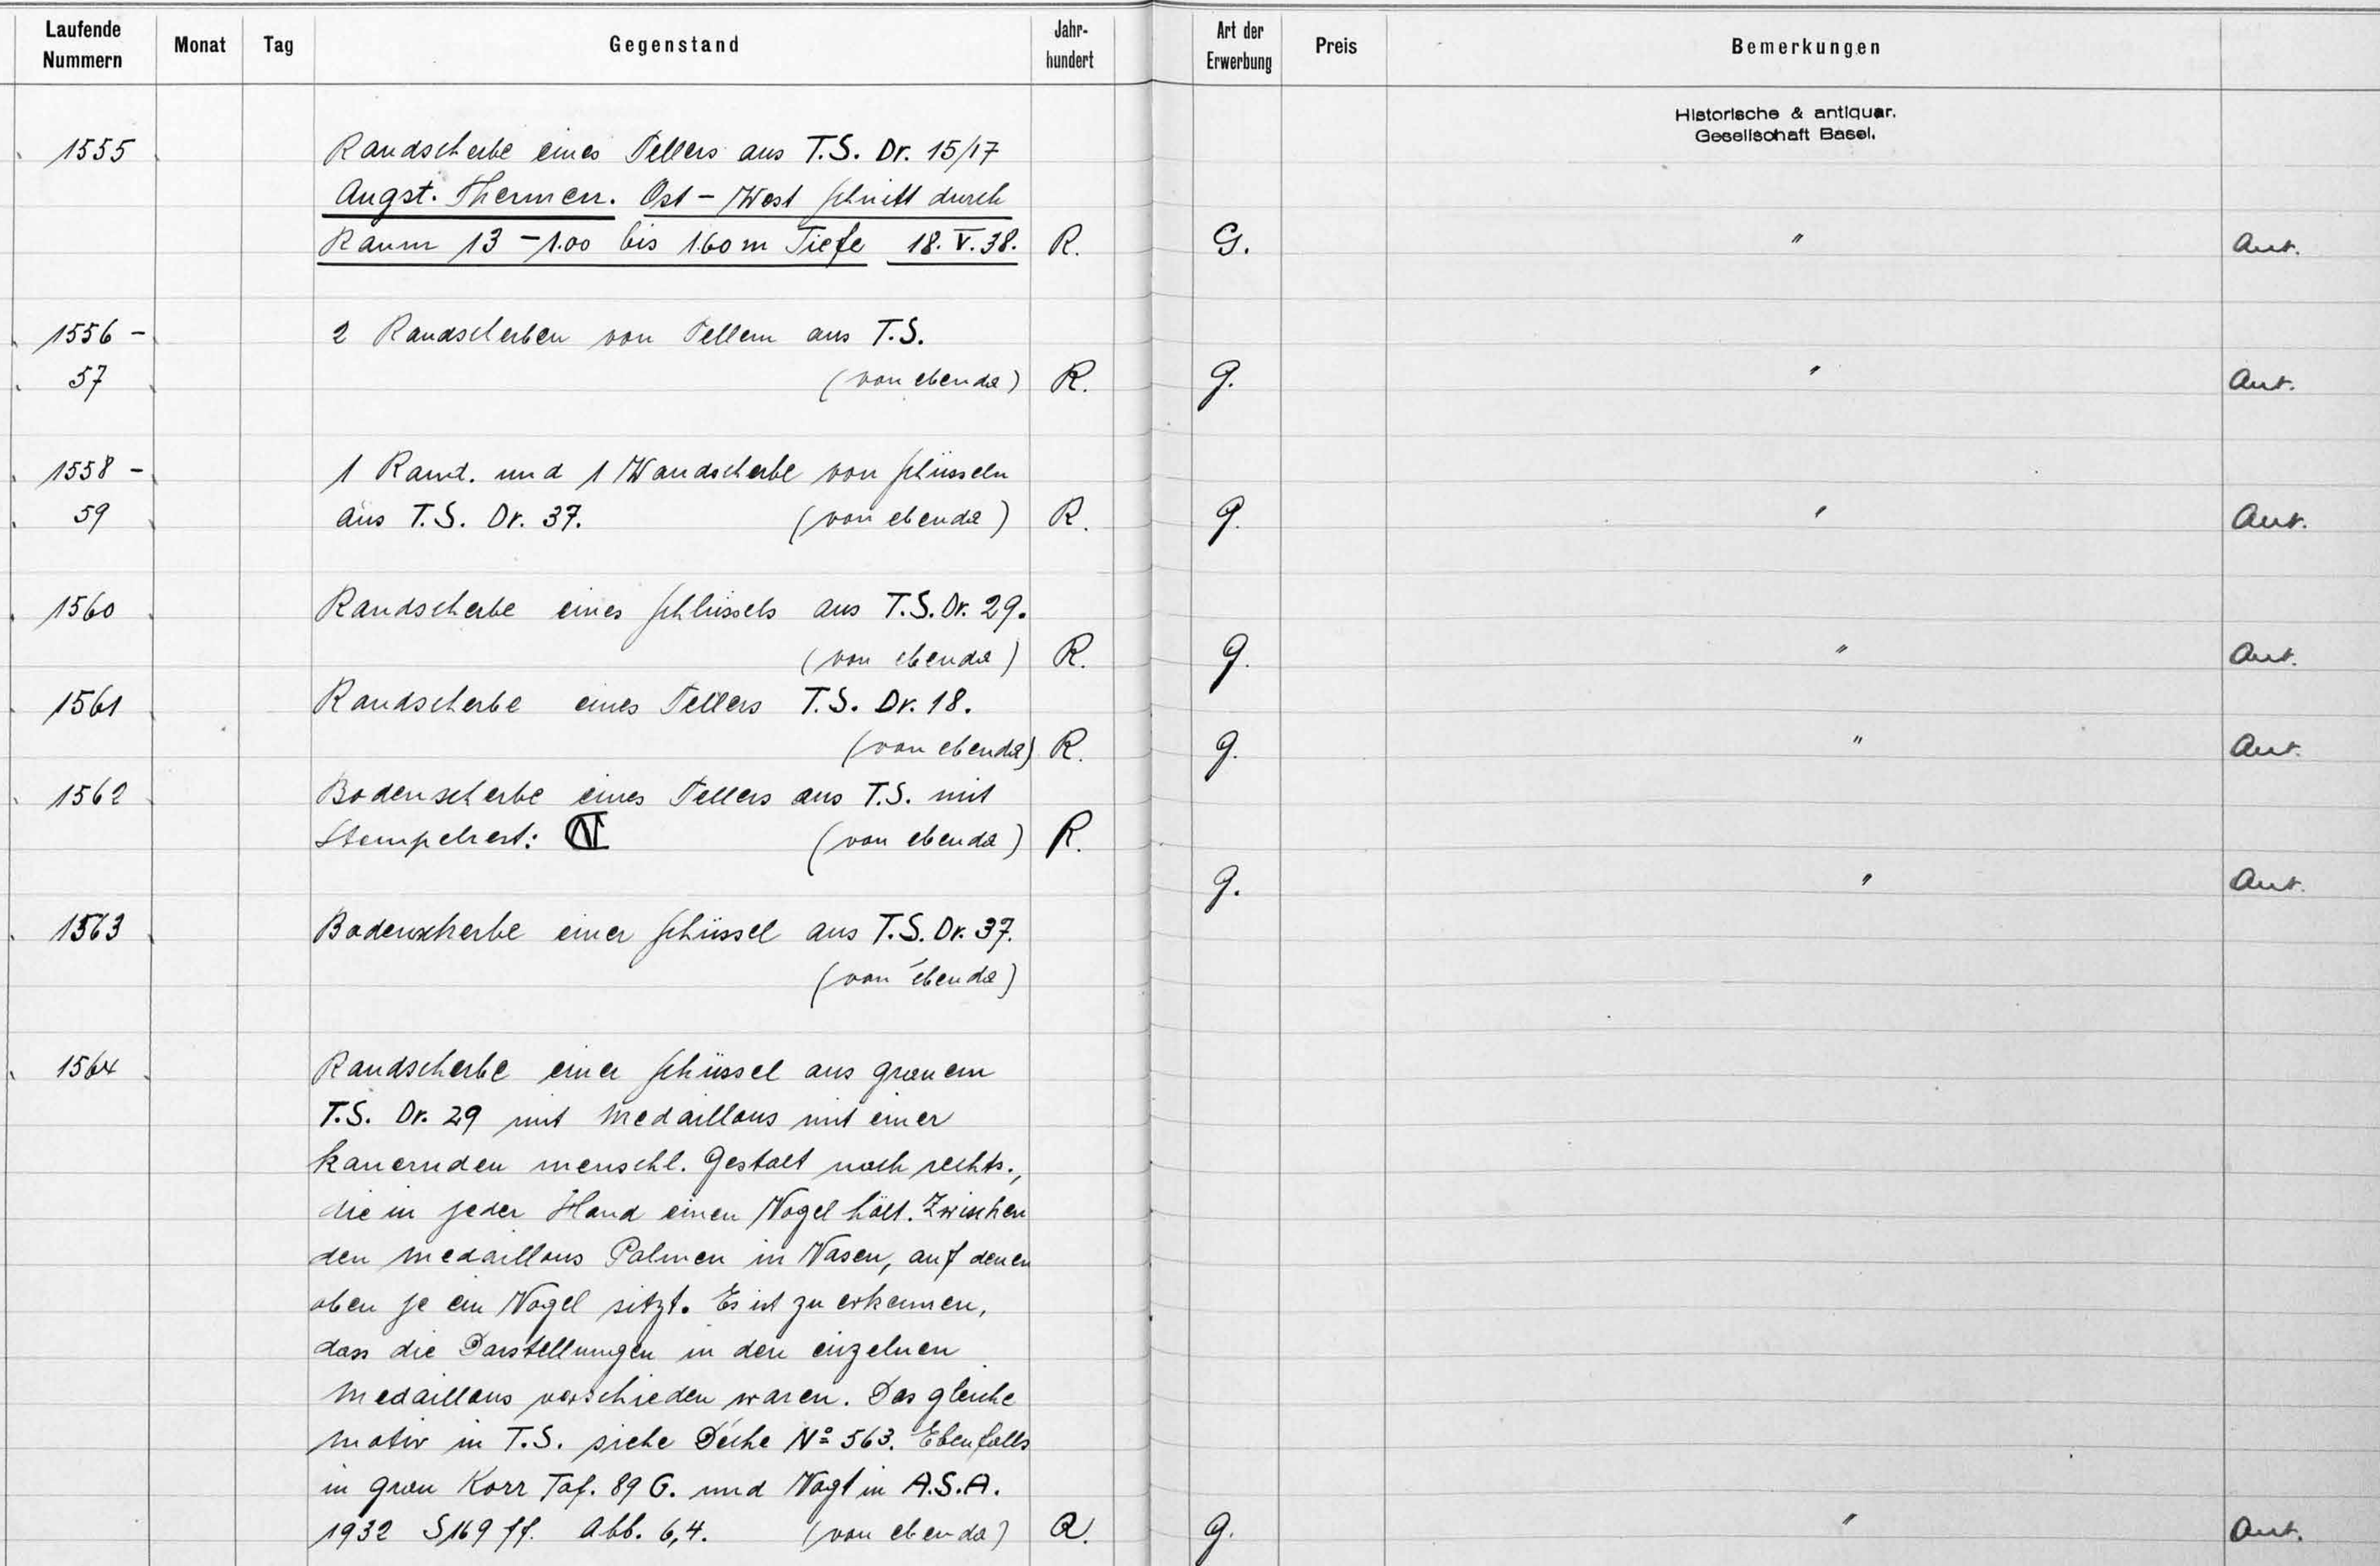 Laufende Nummern Monat Tag Gegenstand Jahr-hundert Art der Erwerbung Preis Bemerkungen
Historische & antiquar.
Gesellschaft Basel.
1555 Randscherbe eines Tellers aus T.S. Dr. 15/17
Augst. Thermen. Ost – West Schnitt durch
Raum 13 – 1.00 bis 1.60 m Tiefe 18. V. 38. R. G. " Ant.
1556 – 2 Randscherben von Tellern aus T.S.
57 (von ebenda) R. G. " Ant.
1558 – 1 Rand. und 1 Wandscherbe von Schüsseln
59 aus T.S. Dr. 37. (von ebenda) R. G. " Ant.
1560 Randscherbe eines Schlüssels aus T.S. Dr. 29.
(von ebenda) R. G. " Ant.
1561 Randscherbe eines Tellers T.S. Dr. 18.
(von ebenda) R. G. " Ant.
1562 Bodenscherbe eines Tellers aus T.S. mit
Stempelrest: (von ebenda) R.
G. " Ant.
1563 Bodenscherbe einer Schüssel aus T.S. Dr. 37.
(von ebenda)
1564 Randscherbe einer Schüssel aus grauem
T.S. Dr. 29 mit Medaillons mit einer
kauernden menschl. Gestalt nach rechts.,
die in jeder Hand einen Vogel hält. Zwischen
den Medaillons Palmen in Vasen, auf denen
oben je ein Vogel sitzt. Es ist zu erkennen,
dass die Darstellungen in den einzelnen
Medaillons verschieden waren. Das gleiche
Motiv in T.S. siehe Déche Nº 563. Ebenfalls
in grau Korr Taf. 89 G. und Vogt in A.S.A.
1932 S 169 ff. Abb. 6,4. (von ebenda) R. G. " Ant.